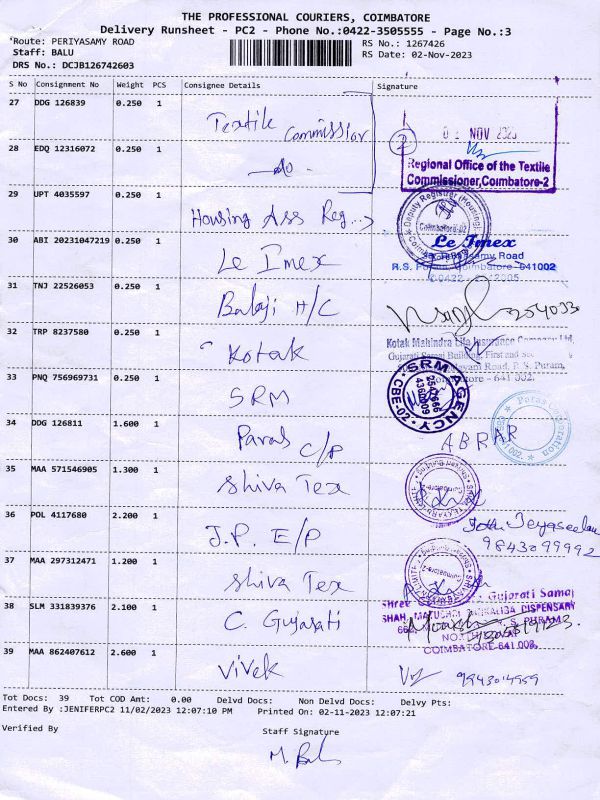 THE PROFESSIONAL COURIERS, COIMBATORE
Delivery Runsheet - PC2 - Phone No.:0422-3505555 - Page No.:3
Route: PERIYASAMY ROAD RS No.: 1267426
Staff: BALU RS Date: 02-Nov-2023
DRS No.: DCJB126742603
S No Consignment No Weight PCS Consignee Details Signature
27 DDG 126839 0.250 1 Textile Commission
02 NOV 2023
28 EDQ 12316072 0.250 1 -do-
Regional Office of the Textile
Commissioner, Coimbatore-2
29 UPT 4035597 0.250 1 Housing Ass Reg
Deputy Registrar (Housing)
Coimbatore-02
30 ABI 20231047219 0.250 1 Le Imex
Le Imex
R.S. Puram, Coimbatore - 641002
31 TNJ 22526053 0.250 1 Balaji H/C
32 TRP 8237580 0.250 1 Kotak
Kotak Mahindra Life Insurance Company Ltd,
Gujarati Samaj Building, First and
Road, R. S. Puram,
Coimbatore - 641 002.
33 PNQ 756969731 0.250 1 SRM
SRM AGENCY
CBE-02
34 DDG 126811 1.600 1 Paras C/P
Paras Corporation
ABRAR
35 MAA 571546905 1.300 1 Shiva Tex
36 POL 4117680 2.200 1 J.P. E/P
9843099992
37 MAA 297312471 1.200 1 Shiva Tex
38 SLM 331839376 2.100 1 C. Gujarati
Shree Gujarati Samaj
SHAH DISPENSARY
R. S. PURAM
COIMBATORE-641 002.
39 MAA 862407612 2.600 1 Vivek
Tot Docs: 39 Tot COD Amt: 0.00 Delvd Docs: Non Delvd Docs: Delvy Pts:
Entered By :JENIFERPC2 11/02/2023 12:07:10 PM Printed On: 02-11-2023 12:07:21
Verified By Staff Signature